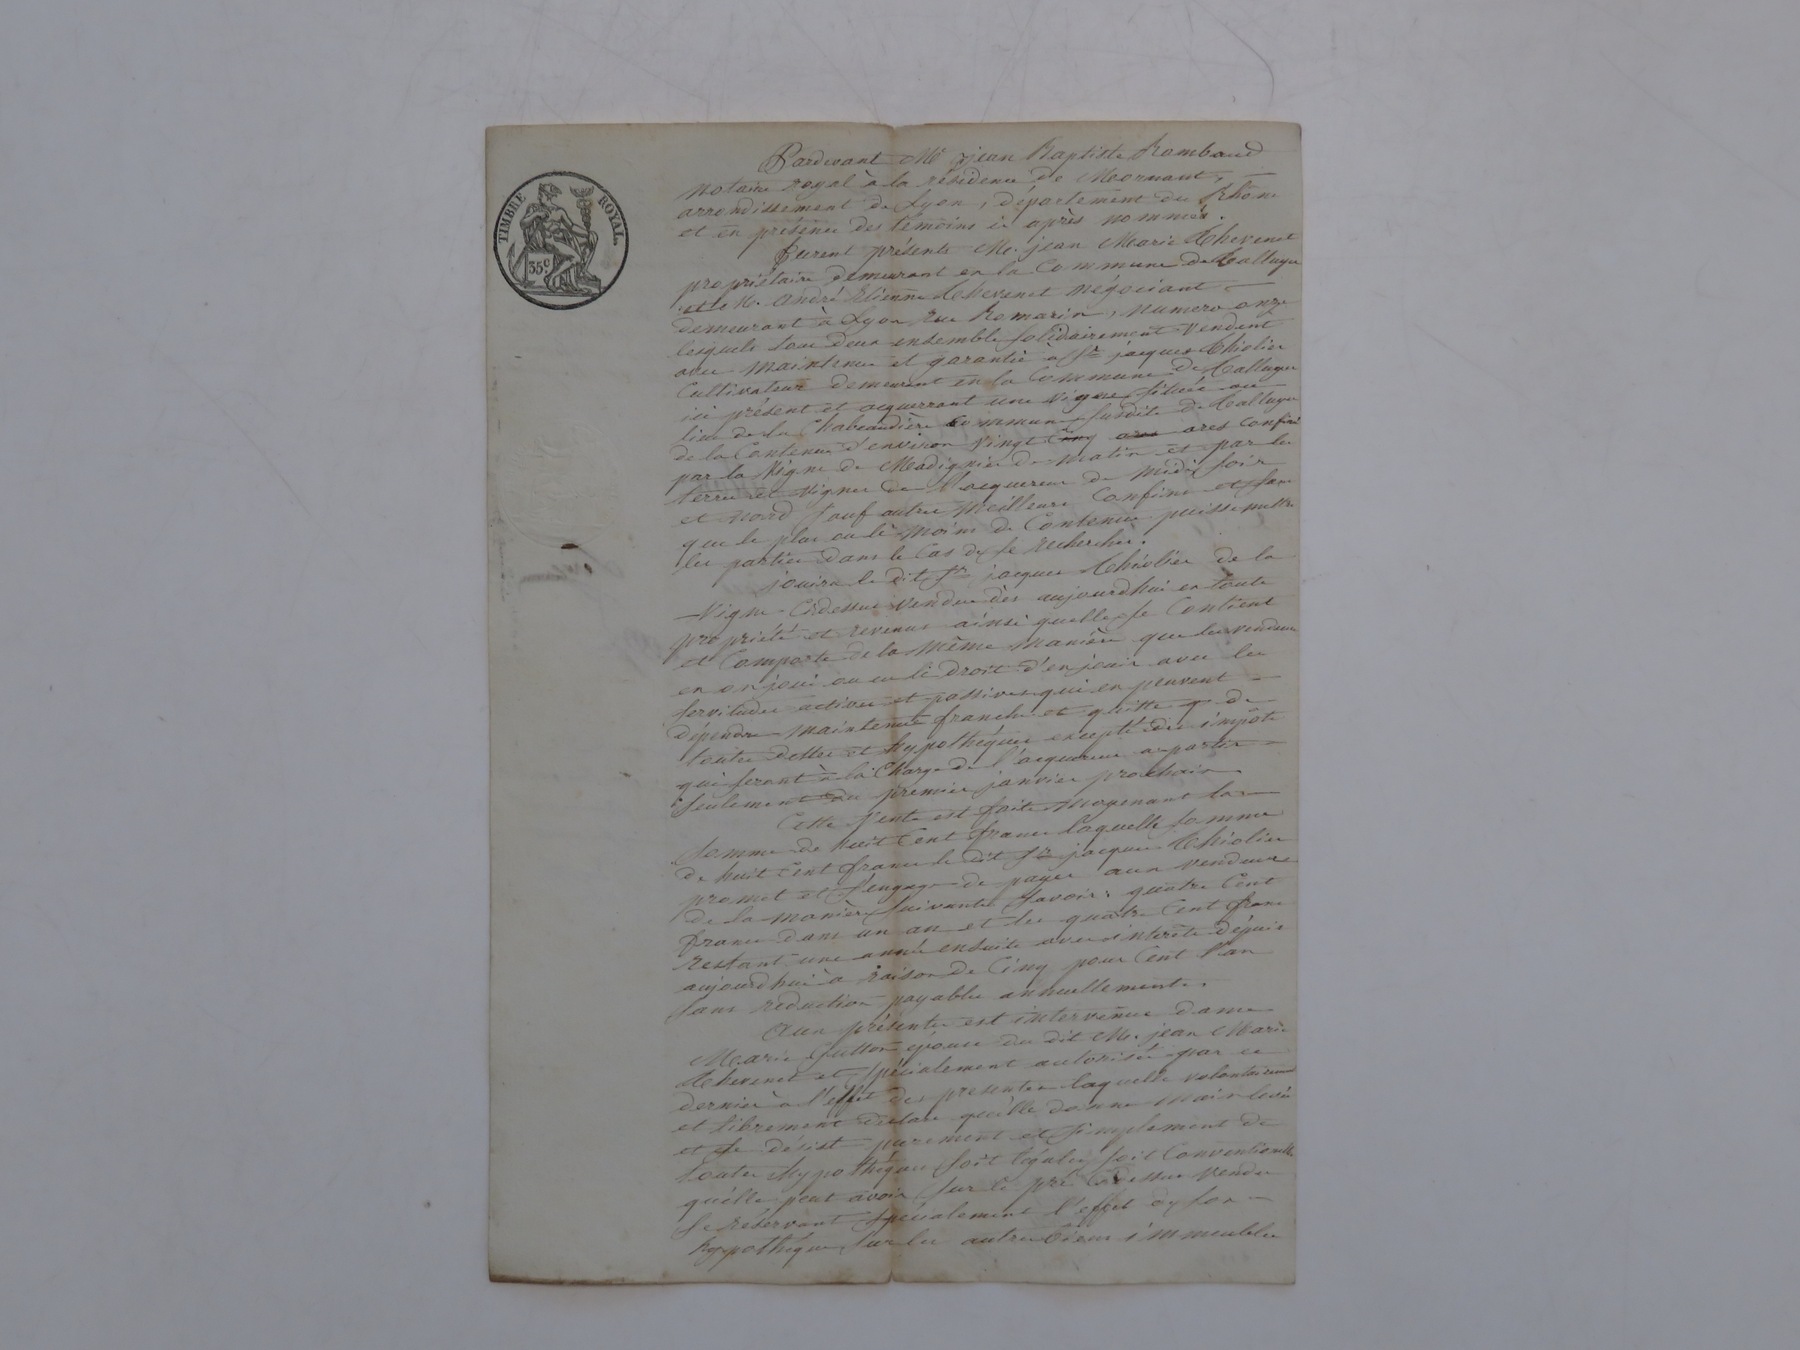 TIMBRE ROYAL.
35c
Pardevant Me jean Baptiste Rombaud
notaire royal à la résidence de Mornant,
arrondissement de Lyon, département du Rhône
et en présence des témoins ci après nommés.
Furent présents M. jean Marie Thevenet
propriétaire demeurant en la Commune de Talluyer
et le M. André Etienne Thevenet négociant
demeurant à Lyon Rue Romarin, numero onze
lesquels tous deux ensemble solidairement vendent
avec maintenue et garantie à Sr jacques Thiolier
Cultivateur demeurant en la Commune de Talluyer
ici présent et acquerrant une vigne située au
lieu de la Chavaudière Commune susdite de Talluyer
de la Contenue d'environ vingt Cinq ares confiné
par la Vigne de Madignier de matin et par les
terres et vignes de l'acquereur de midi soir
et nord sauf autres meilleurs Confins et sans
que le plus ou le moins de Contenue puisse mettre
les parties dans le Cas de se rechercher.
jouira le dit Sr jacques Thiolier de la
Vigne Cidessus vendue dès aujourdhui en toute
propriété et revenus ainsi quelle se Contient
et Comporte de la même manière que les vendeurs
en on joui ou eu le droit d'en jouir avec les
servitudes actives et passives qui en peuvent
dépendre maintenue franche et quitte de
toutes dettes et hypothéques excepté des impôts
qui seront à la Charge de l'acquereur apartir
seulement du premier janvier prochain
Cette vente est faite moyenant la
somme de huit Cent francs laquelle somme
de huit Cent francs le dit Sr jacques Thiolier
promet et s'engage de payer aux vendeurs
de la manière suivante savoir: quatre Cent
francs dans un an et les quatre Cent francs
restant une année ensuite avec intérêts dépuis
aujourdhui à raison de Cinq pour Cent l'an
sans réduction payables annuellement.
Aux présentes est intervenue dame
Marie épouse du dit M. jean Marie
Thevenet et spécialement autorisée par ce
dernier à l'effet des presentes laquelle volontairement
et librement déclare quélle donne main levée
et se désiste purement et simplement de
toutes hypothéques soit légales soit Conventionelles
quélle peut avoir sur le pré Cidessus vendu
se réservant spécialement l'effet de son
hypothéque sur les autres biens immeubles